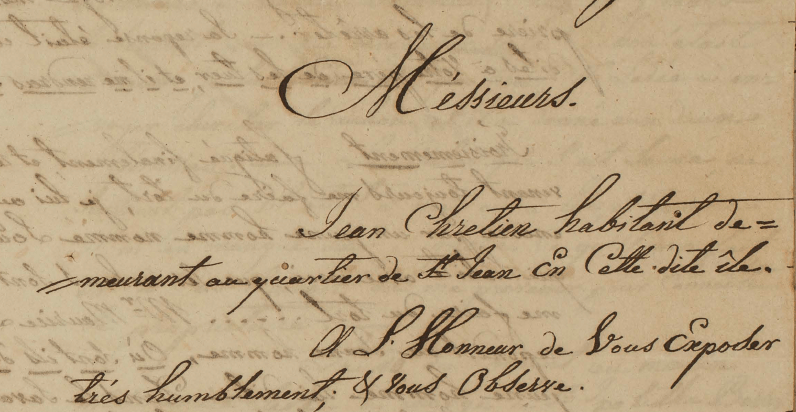 Méssieurs.
Jean Chretien habitant de=
=meurant au quartier de St Jean En Cette dite île.
A L'Honneur de Vous Exposer
trés humblement; & Vous Observe.